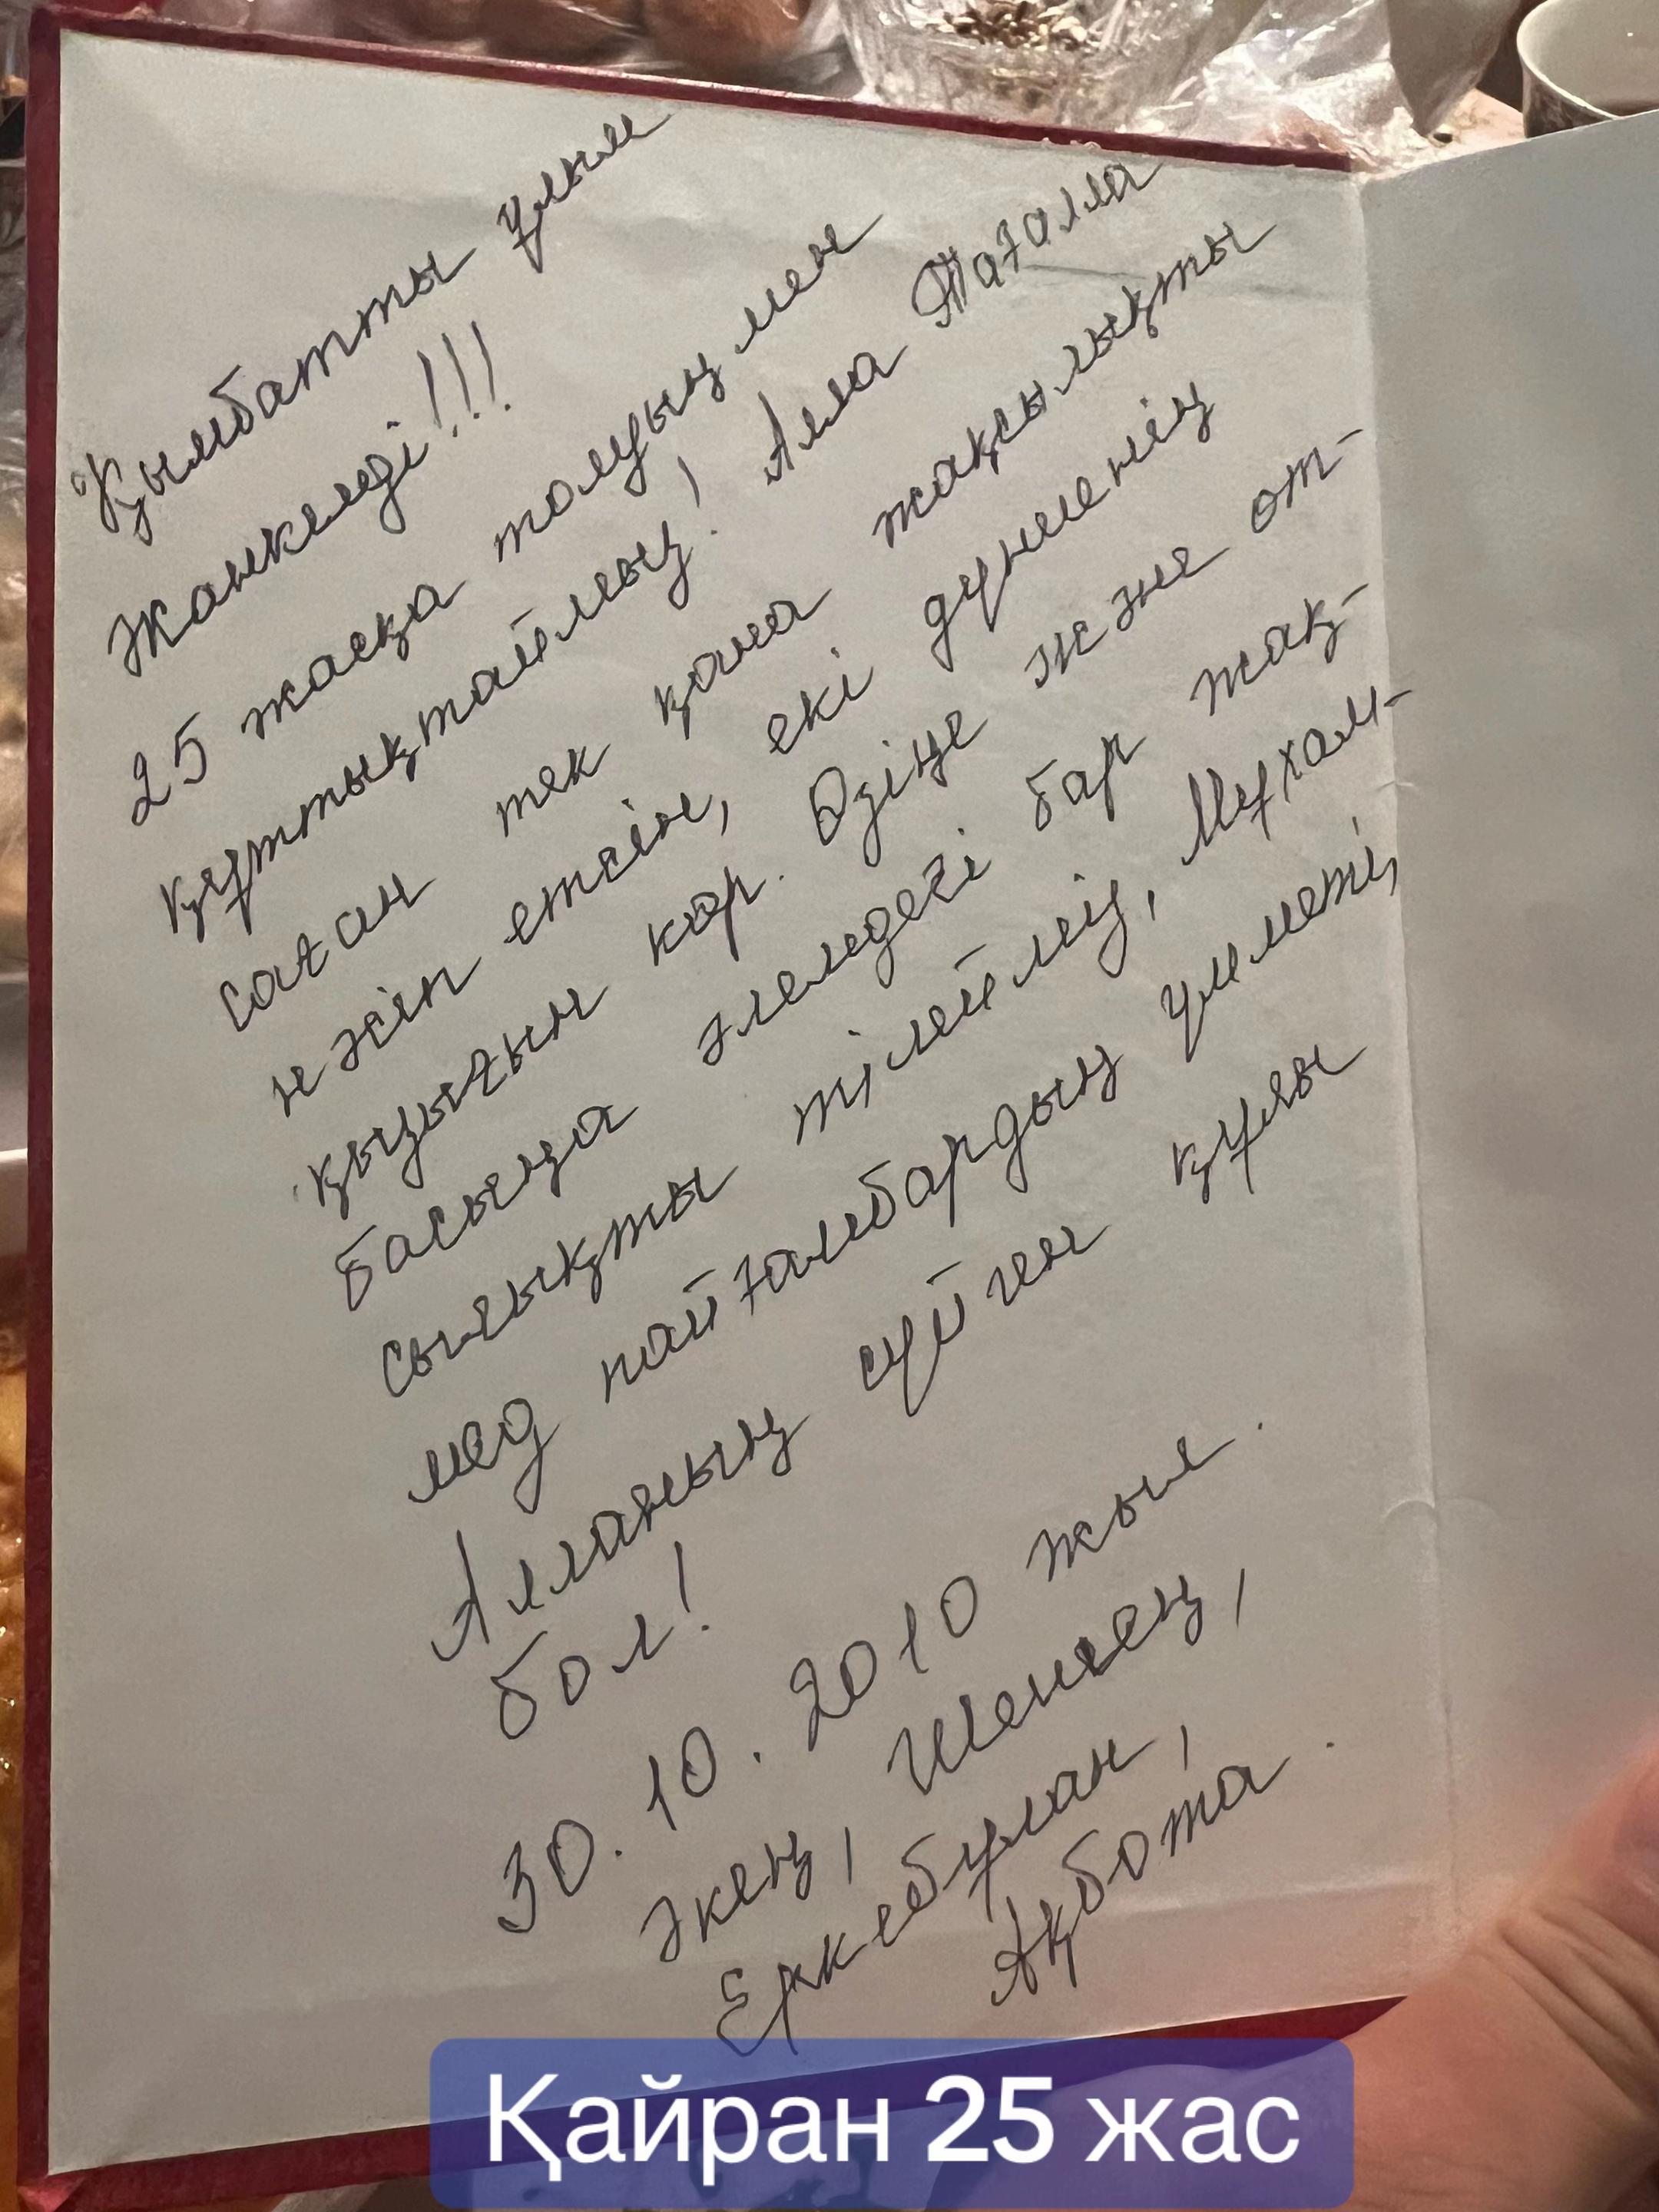 Қымбатты ұлым
Жанкелді!!!
25 жасқа толуыңмен
құттықтаймыз! Алла Тағалла
саған тек қана жақсылықты
нәсіп етсін, екі дүниенің
қызығын көр. Өзіңе және от-
басыңа әлемдегі бар жақ-
сылықты тілейміз, Мұхам-
мед пайғамбардың үмметі,
Алланың сүйген құлы
бол!
30.10.2010 жыл.
Әкең, Шешең,
Еркебұлан,
Ақбота.
Қайран 25 жас